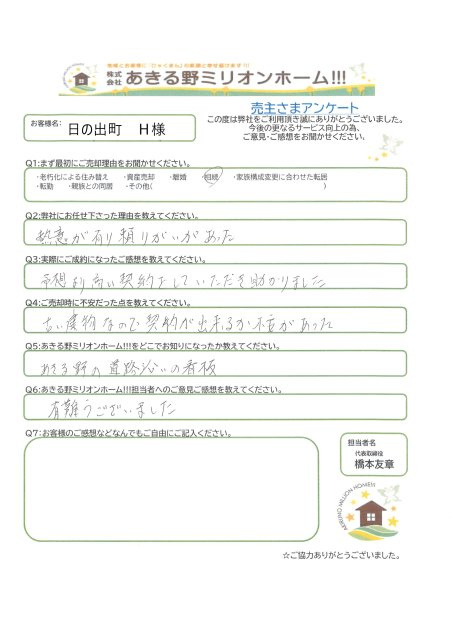 地域とお客様に「ひゃくまん」の笑顔と幸せ届けます!!!
株式会社 あきる野ミリオンホーム!!!
売主さまアンケート
お客様名: 日の出町 H様
この度は弊社をご利用頂き誠にありがとうございました。
今後の更なるサービス向上の為、
ご意見・ご感想をお聞かせください。
Q1:まず最初にご売却理由をお聞かせください。
・老朽化による住み替え ・資産売却 ・離婚 ・相続 ・家族構成変更に合わせた転居
・転勤 ・親族との同居 ・その他( )
Q2:弊社にお任せ下さった理由を教えてください。
熱意が有り頼りがいがあった
Q3:実際にご成約になったご感想を教えてください。
予想より高い契約をしていただき助かりました
Q4:ご売却時に不安だった点を教えてください。
古い建物なので契約が出来るか不安があった
Q5:あきる野ミリオンホーム!!!をどこでお知りになったか教えてください。
あきる野の道路沿いの看板
Q6:あきる野ミリオンホーム!!!担当者へのご意見ご感想を教えてください。
有難うございました
Q7:お客様のご感想などなんでもご自由にご記入ください。
担当者名
代表取締役
橋本友章
AKIRUNO MILLION HOME!!!
☆ご協力ありがとうございました。